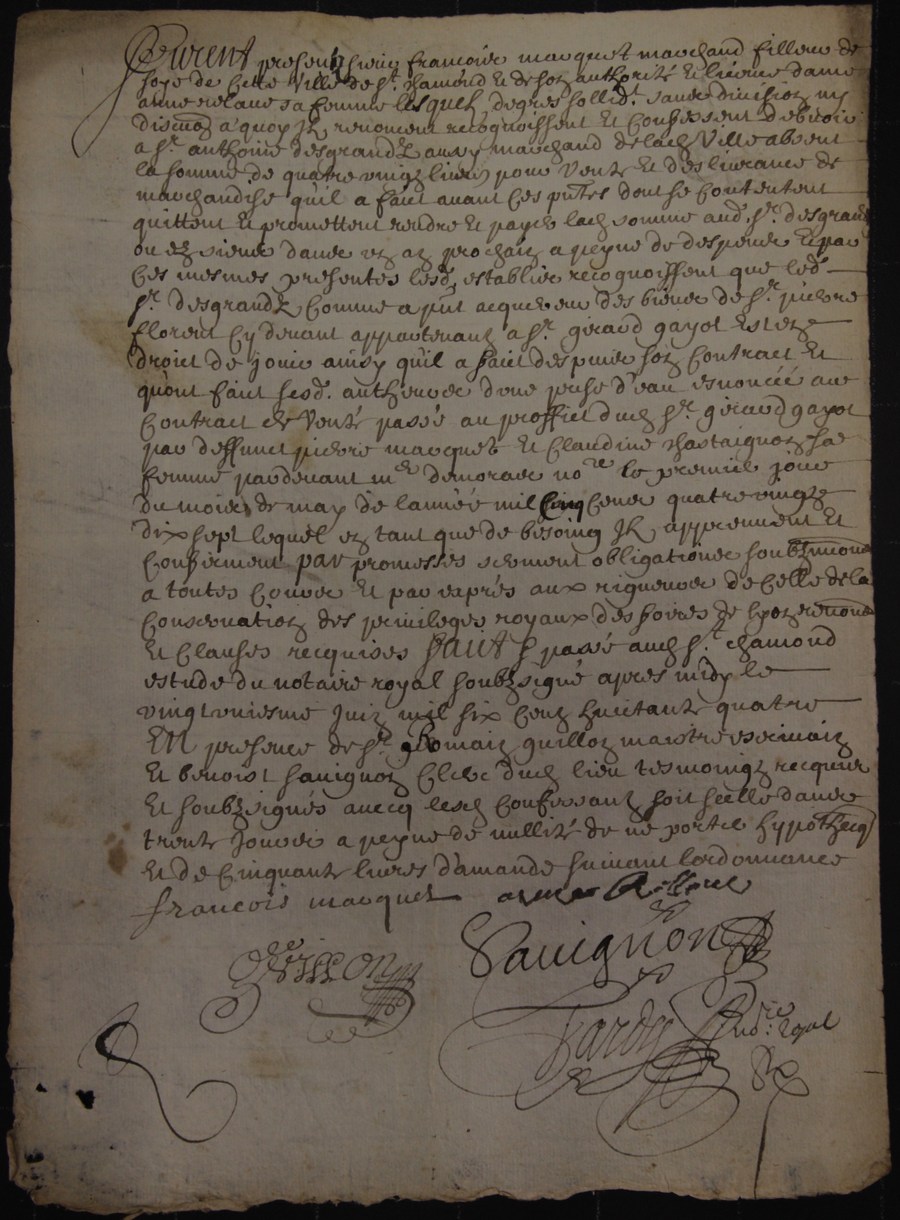 Feurent presentz sieur francois macquet marchand filleur de
soye de cette ville de st. chamond et de son authorité et licence dame
anne relave sa femme lesquelz degres sollidt. sans division ny
discuon a quoy ilz renoncent recognoissent et confessent debvoir
a sr. anthoine desgrandz aussy marchand de lad ville absent
la somme de quatre vingtz livres pour vente et deslivrance de
marchandise qu'il a faict avant ces pntes dont se contentent
quittent et promettent rendre et payer lad somme aud. sr. desgrandz
ou ez siens dans un an prochain a peyne de despens et par
ces mesmes presentes lesd. establis recognoissent que led.
sr. desgrandz comme a pnt acquereur des biens de sr. pierre
florent cy devant appartenantz a sr. giraud gayot est en
droict de jouir ainsy qu'il a faict despuis son contract et
qu'ont faict sesd. autheurs d'une prise d'eau enoncée au
contract de vente passé au proffict dud sr. giraud gayot
par deffunct pierre macquet et claudine chastaignon sa
femme pardevant me demoras nore le premier jour
du mois de may de l'année mil cinq cens quatre vingtz
dix sept lequel en tant que de besoing ilz apprennent et
conferment par promesses serment obligations soubzmions
a toutes cours et par exprés aux rigueurs de celle de la
conservation des privileges royaux des foires de lyon renons
et clauses requises faict et passé aud st. chamond
estude du notaire royal soubzsigné apres midy le
vingt uniesme juin mil six centz huictante quatre
En presence de sr. romain guillon maistre escrivain
et benoist savignon clerc dud lieu tesmoingz recquis
et soubzsignés avecq lesd confessantz soit scellé dans
trente jours a peyne de nullité de ne porter hypothecq
et de cinquante livres d'amande suivant l'ordonnance
francois macquet anne Rellave
Savignon
Tardy
nore. royal